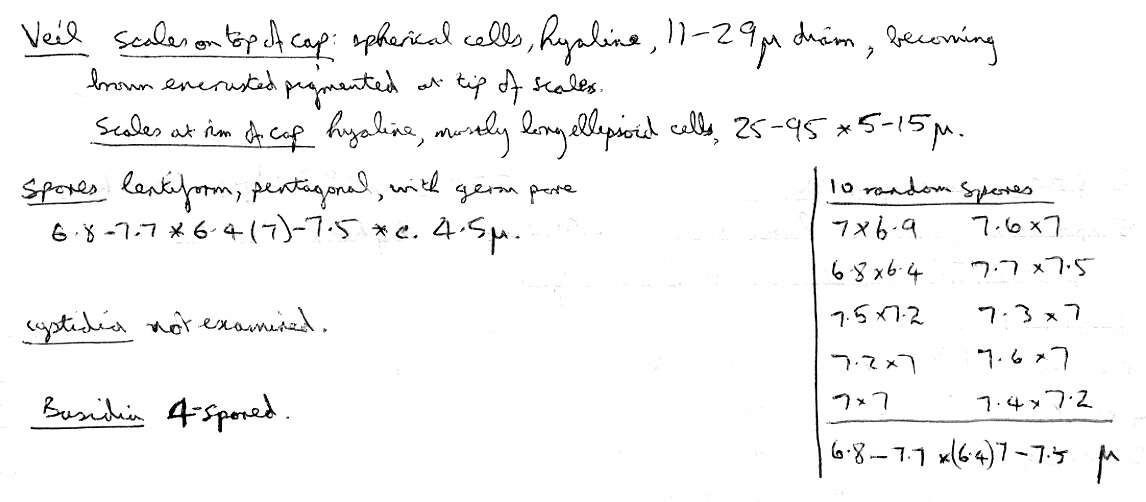 Veil scales on top of cap: spherical cells, hyaline, 11-29μ diam, becoming
brown encrusted pigmented at tip of scales.
Scales at rim of cap hyaline, mostly long ellipsoid cells, 25-95 × 5-15μ.
Spores lentiform, pentagonal, with germ pore
6.8-7.7 × 6.4(7)-7.5 × c. 4.5μ.
cystidia not examined.
Basidia 4-spored.
10 random spores
7×6.9 7.6×7
6.8×6.4 7.7×7.5
7.5×7.2 7.3×7
7.2×7 7.6×7
7×7 7.4×7.2
6.8-7.7 ×(6.4)7-7.5 μ